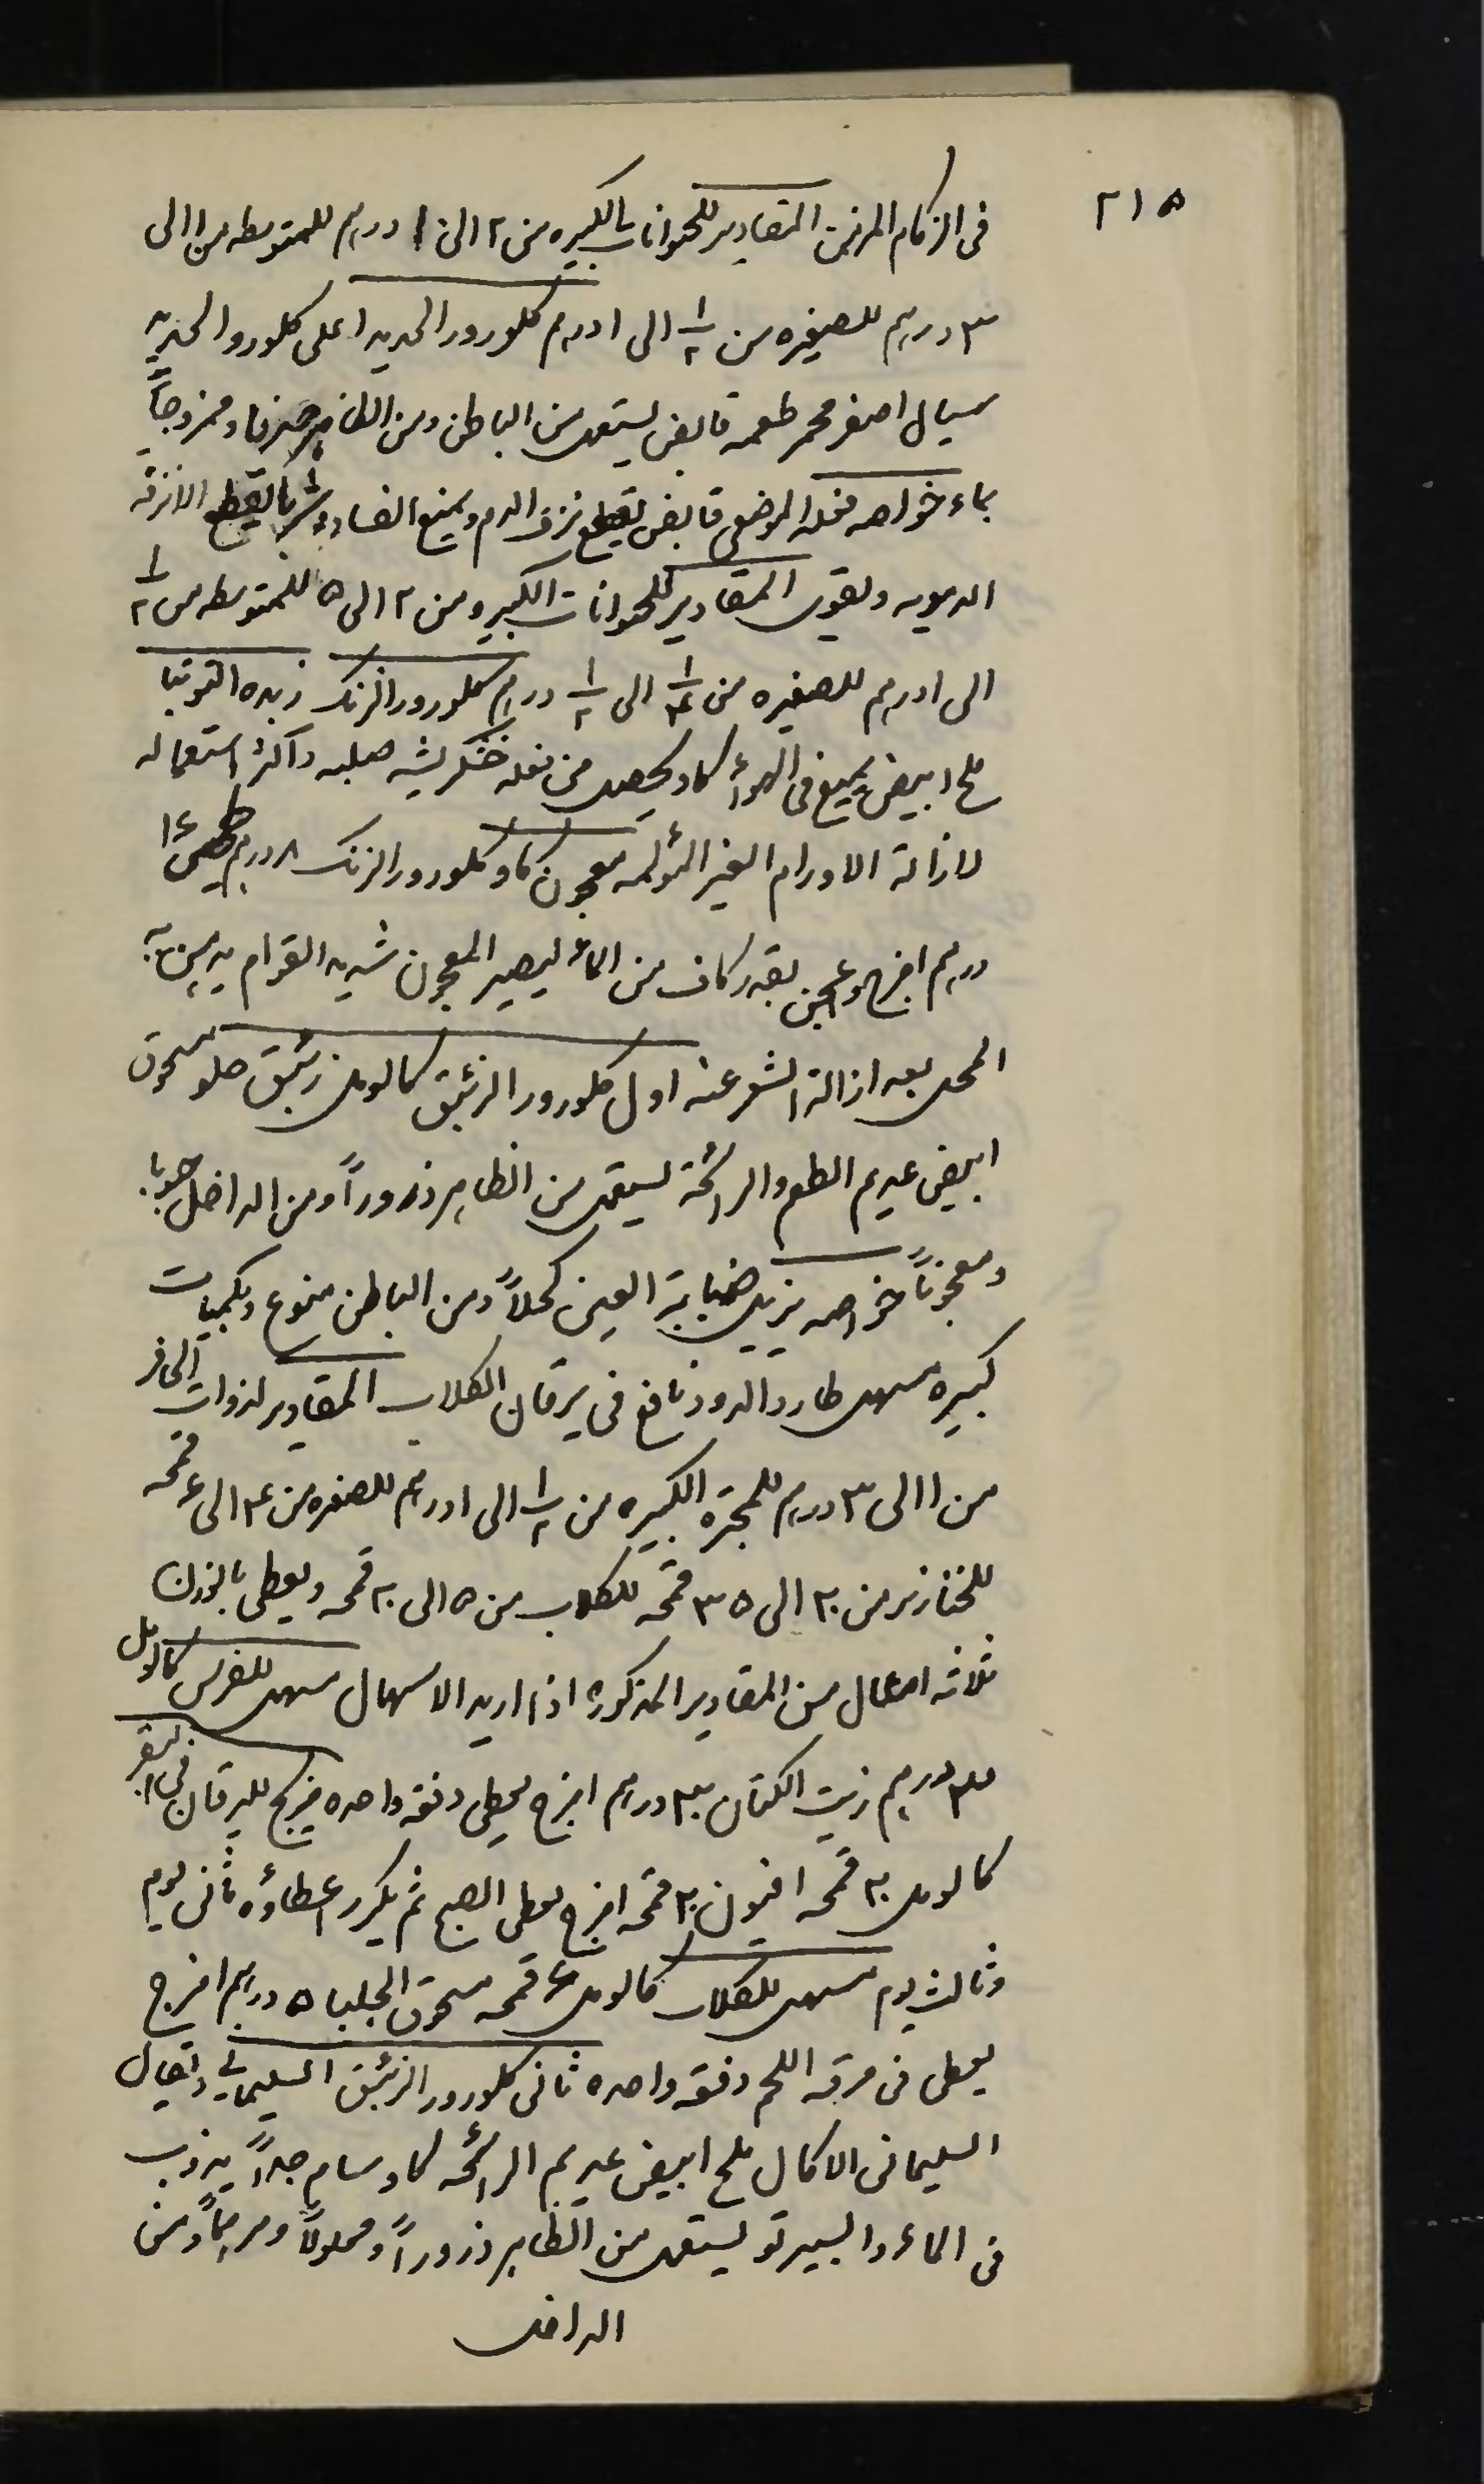 ٢١٥
فى الزكام المزمن المقادير للحيوانات الكبيره من ٢ الى درهم للمتوسطه من ١ الى
٣ درهم للصغيره من ١/٢ الى ١ درهم كلورور الحديد اعلى كلورور الحديد
سيال اصفر محمر طعمه قابض يستعمل من الباطن ومن الظاهر صرفا وممزوجاً
بماء خواصه فعله الموضعى قابض يقطع نزف الدم ويمنع الفساد شربا يقطع الانزفه
الدمويه ويقوى المقادير للحيوانات الكبيره من ٢ الى ٥ للمتوسطه من ١/٢
الى ١ درهم للصغيره من ١/٤ الى ١/٢ درهم كلورور الزنك زبده التوتيا
ملح ابيض يميع فى الهواء كاو يحصل من فعله خشكريشه صلبه واكثر استعماله
لازالة الاورام الغير المؤلمه معجون كاو كلورور الزنك ٨ درهم طحين ١٤
درهم امزج واعجن بقدر كاف من الماء ليصير المعجون شديد القوام يدهن به
المحل بعد ازالة الشعر عنه اول كلورور الزئبق كالومل زئبق حلو مسحوق
ابيض عديم الطعم والرائحة يستعمل من الظاهر ذروراً ومن الداخل حبوبا
ومعجوناً خواصه يزيل ضبابة العين كحلاً ومن الباطن منوع وبكميات
كبيره مسهل طارد الدود نافع فى يرقان الكلاب المقادير لذوات الحافر
من ١ الى ٣ درهم للمجتره الكبيره من ١/٢ الى ١ درهم للصغيره من ٤ الى ٤ قمحه
للخنازير من ٢٠ الى ٣٥ قمحه للكلاب من ٥ الى ٢٠ قمحه ويعطى بالوزن
ثلاثه امثال من المقادير المذكوره اذا اريد الاسهال مسهل للفرس كالومل
درهم زيت الكتان درهم امزج يعطى دفعه واحده مزيج لليرقان فى البقر
كالومل ٢٠ قمحه افيون ٢٠ قمحه امزج يعطى الصبح ثم يكرر اعطاؤه ثانى يوم
وثالث يوم مسهل للكلاب كالومل ٤ قمحه مسحوق الجلبا ٥ درهم امزج
يعطى فى مرقه اللحم دفعه واحده ثانى كلورور الزئبق السليمانى ويقال
السليمانى الاكال ملح ابيض عديم الرائحه كاو سام جداً يذوب
فى الماء والسبيرتو يستعمل من الظاهر ذروراً ومحلولاً ومرهماً ومن
الداخل